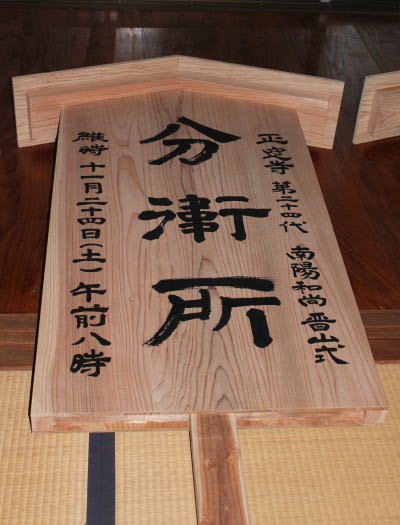 正窓寺 第二十四代 南陽和尚晋山式
分衛所
維時 十一月二十四日(土) 午前八時